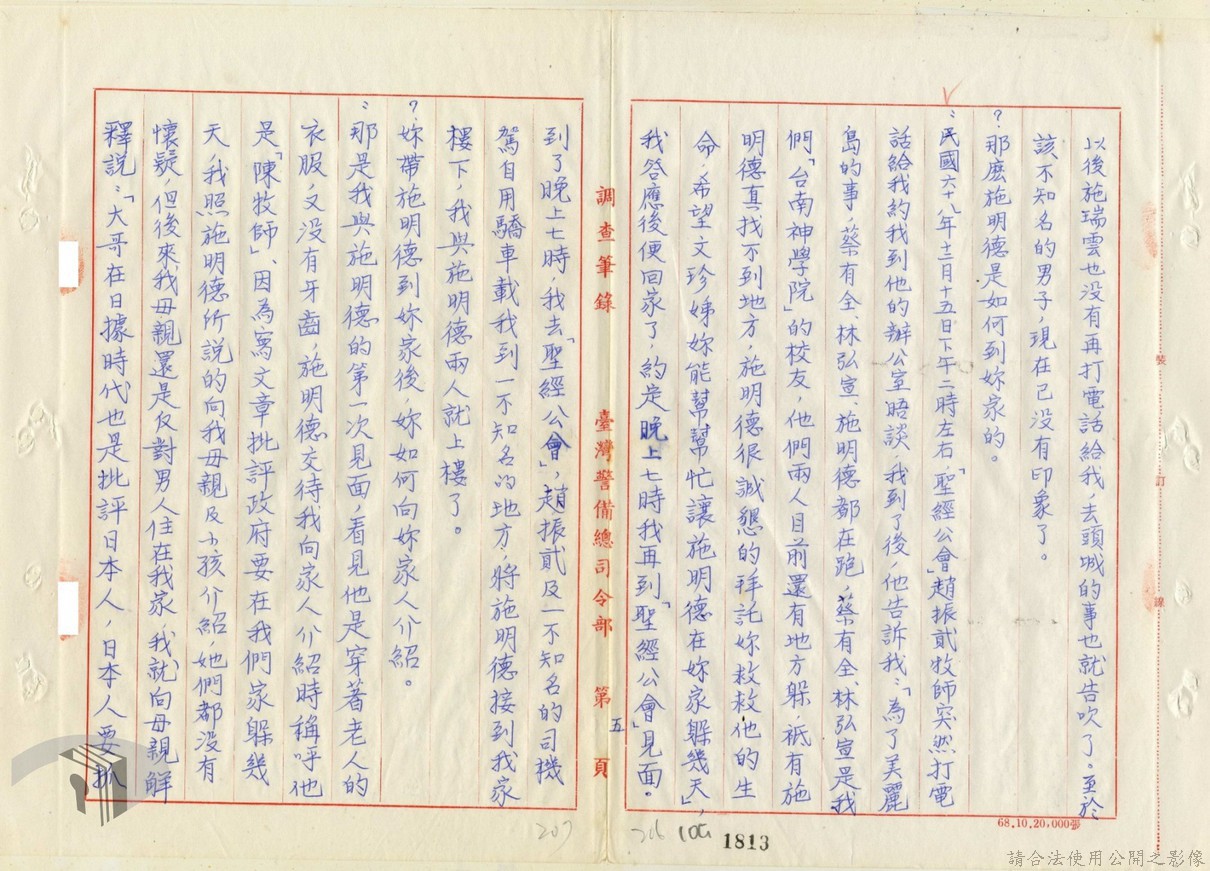 以後施瑞雲也没有再打電話給我，去頭城的事也就告吹了。至於
該不知名的男子，現在已没有印象了。
？那麽施明德是如何到妳家的。
：民國六十八年十二月十五日下午二時左右，「聖經公會」趙振貳牧師突然打電
話給我約我到他的辦公室晤談，我到了後，他告訴我：「為了美麗
島的事，蔡有全、林弘宣、施明德都在跑，蔡有全、林弘宣是我
們「台南神學院」的校友，他們兩人目前還有地方躲，祇有施
明德真找不到地方，施明德很誠懇的拜託妳救救他的生
命，希望文珍姊妳能幫幫忙讓施明德在妳家躲幾天」，
我答應後便回家了，約定晚上七時我再到「聖經公會」見面。
調查筆錄 臺灣警備總司令部 第五頁
到了晚上七時，我去「聖經公會」，趙振貳及一不知名的司機
駕自用驕車載我到一不知名的地方，將施明德接到我家
樓下，我與施明德兩人就上樓了。
？妳帶施明德到妳家後，妳如何向妳家人介紹。
：那是我與施明德的第一次見面，看見他是穿著老人的
衣服，又没有牙齒，施明德交待我向家人介紹時稱呼他
是「陳牧師」、因為寫文章批評政府要在我們家躲幾
天，我照施明德所説的向我母親及小孩介紹，她們都没有
懷疑，但後來我母親還是反對男人住在我家，我就向母親解
釋説：「大哥在日據時代也是批評日本人，日本人要抓
68.10.20,000張
裝
訂
線
207
106
1813
請合法使用公開之影像